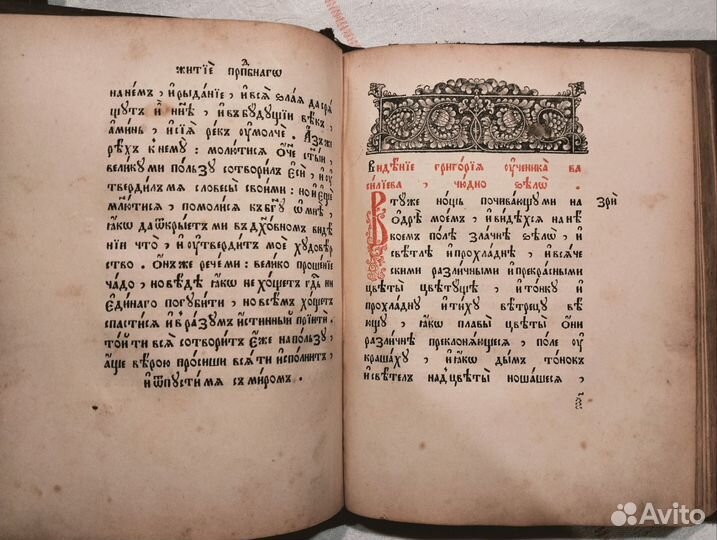 житїе прⷣпбнагѡ
на нем̾ , и҆ рыданїе , и҆ всѧ̀ ѕлаѧ да сра
щꙋт и҆ нн҃ѣ , и҆ в̾ бꙋдꙋщїи вѣк̾ ,
аминь , и҆ сїѧ̀ рек̾ ᲂу҆молче . А҆з̾ же
рѣх̾ к̾ немꙋ : молютисѧ ѻ҆́ч҃е ст҃ыи ,
великꙋ ми пользꙋ сотворил̾ є҆сѝ , и҆ ᲂу҆
твердил̾ мѧ словесы̀ своими : но и҆ є҆ще
мⷧ҇ютисѧ , помолисѧ к̾ бг҃ꙋ ѡ҆ мнѣ̀ ,
ꙗ҆́кѡ да ѿкрыет̾ ми в̾ дх҃овном̾ видѣ
нїи что̀ , и҆ ᲂу҆твердит̾ моѐ хꙋдовѣр
ство . Ѻ҆н̾ же рече ми : велико прошенїе
чадо , но вѣдѣ ꙗ҆́кѡ не хощет̾ гд҇ь ни
є҆динаго погꙋбити , но всѣм̾ хощет̾
спастисѧ и҆ в̾ разꙋм̾ и҆стинный прїити .
той ти всѧ̀ сотворит̾ є҆же на пользꙋ ,
аще вѣрою просиши всѧ̀ ти и҆сполнит̾ ,
и҆ ѿпꙋсти мѧ с̾ миром̾ .
Видѣнїе григорїѧ ᲂу҆ченика ва
силїева , чюдно ѕѣлѡ̀ .
Втꙋже нощь почивающꙋ ми на зри
ѻ҆дрѣ моем̾ , и҆ видѣхсѧ на нѣ
коем̾ полѣ̀ злачнѣ ѕѣлѡ̀ , и҆
свѣтлѣ и҆ прохладнѣ , и҆ всѧче
скими различными и҆ прекрасными
цвѣты̀ цвѣтꙋщѣ , и҆ тонкꙋ и҆
прохладнꙋ и҆ тихꙋ вѣтрецꙋ вѣ
ющꙋ , ꙗ҆́кѡ плавы̀ цвѣты̀ ѻ҆ни
различнѣ преклонѧющесѧ , поле ᲂу҆
крашахꙋ , и҆ ꙗ҆́кѡ дым̾ тонок̾
и҆ свѣтел̾ над̾ цвѣты̀ ношашесѧ ,
Avito